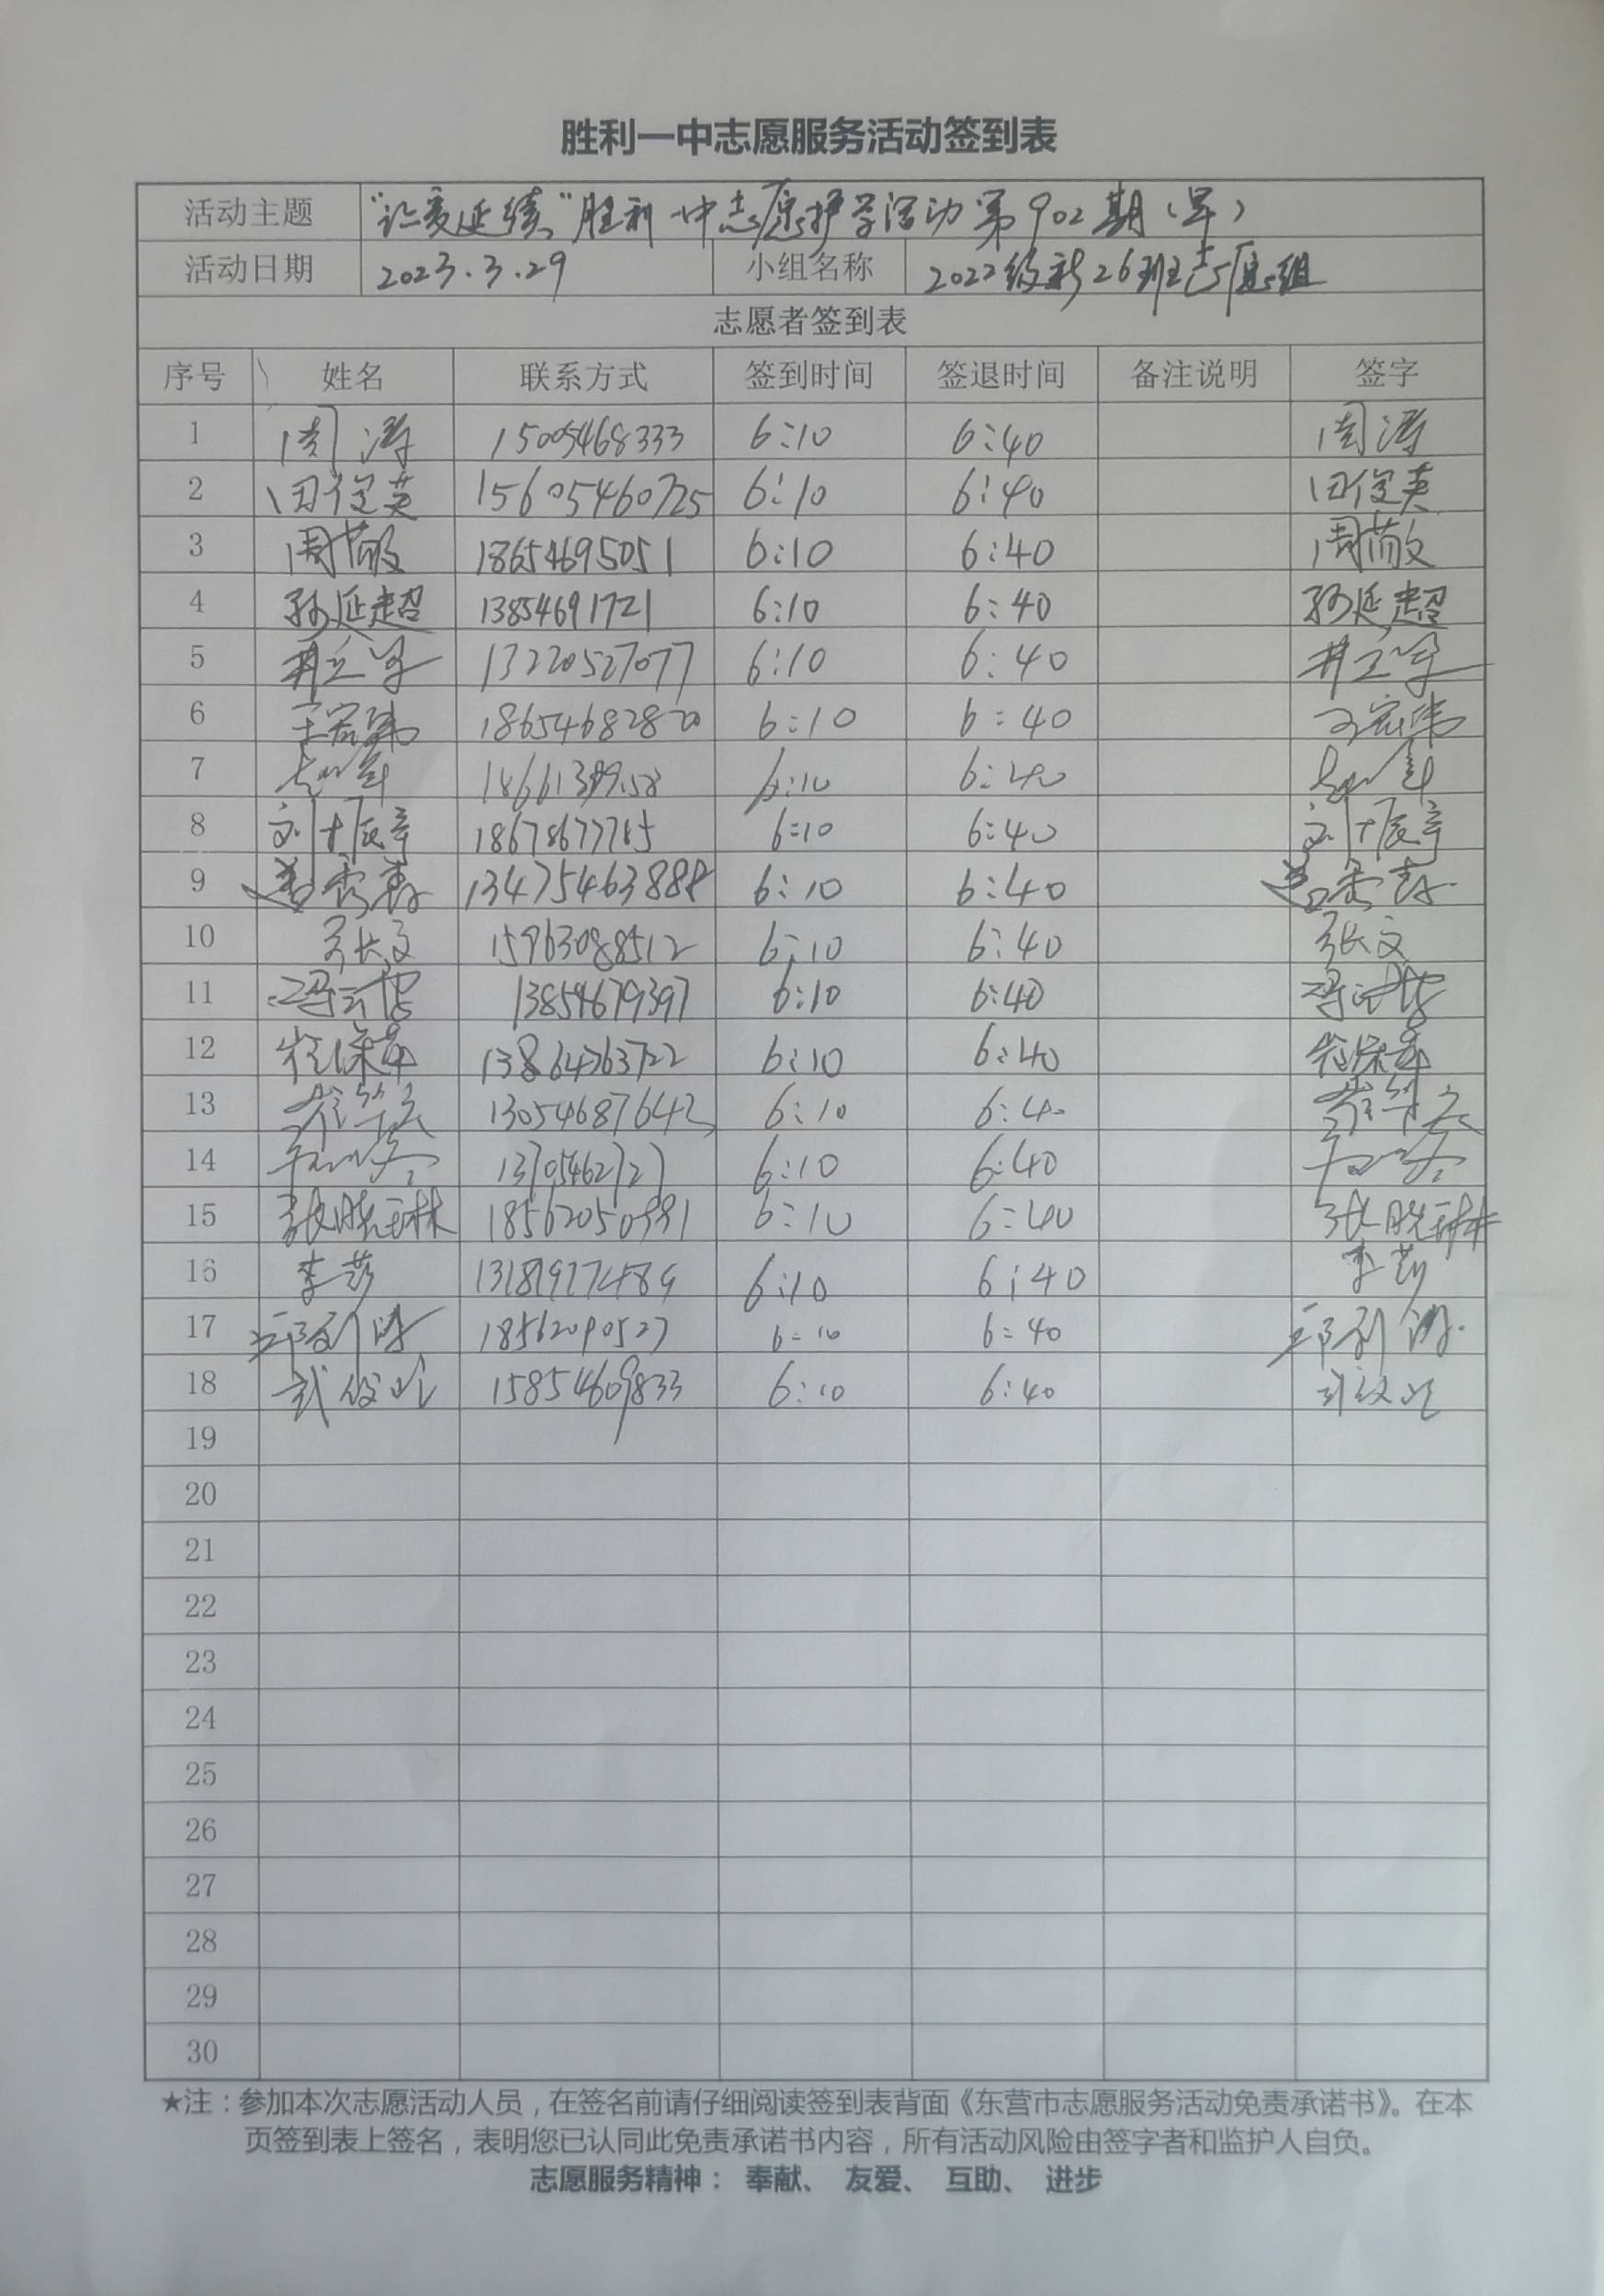 胜利一中志愿服务活动签到表
活动主题 "让爱延续"胜利一中志愿护学活动第902期（早）
活动日期 2023.3.29 小组名称 2022级新26班志愿组
志愿者签到表
序号 姓名 联系方式 签到时间 签退时间 备注说明 签字
1 周涛 15005468333 6:10 6:40 周涛
2 田俊英 15605460725 6:10 6:40 田俊英
3 周 18654695051 6:10 6:40 周
4 孙延超 13854691721 6:10 6:40 孙延超
5 13220527077 6:10 6:40
6 王宏伟 18654682870 6:10 6:40 王宏伟
7 6:10 6:40
8 刘振章 18678677785 6:10 6:40 刘振章
9 13475463888 6:10 6:40
10 张文 15963088512 6:10 6:40 张文
11 冯 13854679397 6:10 6:40 冯
12 崔保革 13864763722 6:10 6:40 崔保革
13 13054687642 6:10 6:40
14 6:10 6:40
15 张晓琳 18562050991 6:10 6:40 张晓琳
16 李莎 13181977489 6:10 6:40 李莎
17 18562090527 6:10 6:40
18 武 15854609833 6:10 6:40 武
19
20
21
22
23
24
25
26
27
28
29
30
★注：参加本次志愿活动人员，在签名前请仔细阅读签到表背面《东营市志愿服务活动免责承诺书》。在本
页签到表上签名，表明您已认同此免责承诺书内容，所有活动风险由签字者和监护人自负。
志愿服务精神： 奉献、 友爱、 互助、 进步